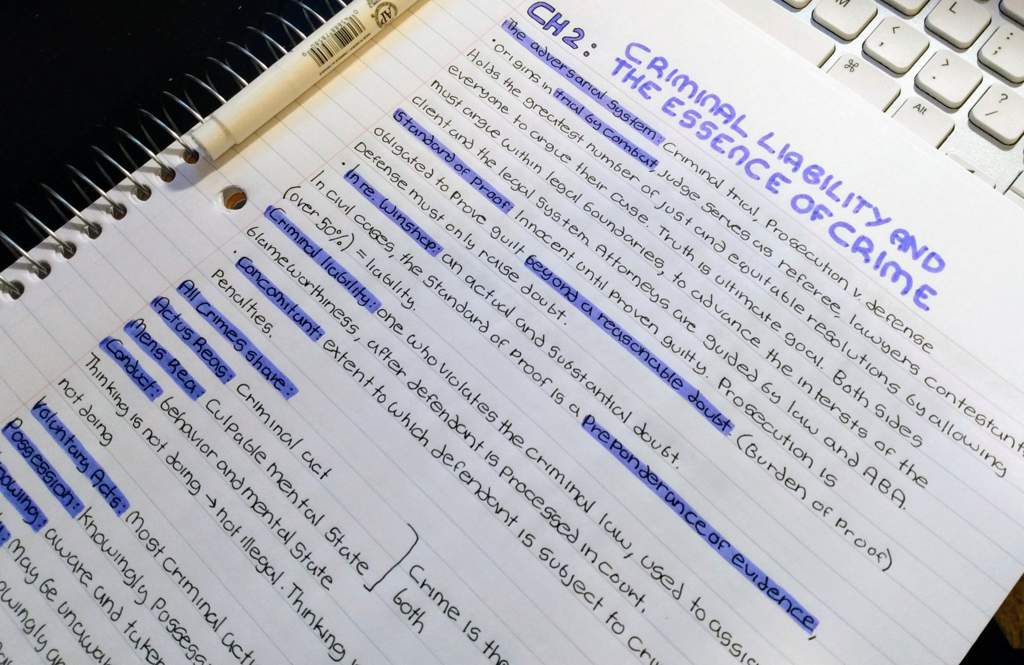 CH2: CRIMINAL LIABILITY AND
THE ESSENCE OF CRIME
The adversarial system: Criminal trial, Prosecution v. defense
• Origins in trial by combat, Judge serves as referee, lawyers contestant
Holds the greatest number of just and equitable resolutions by allowing
everyone to argue their case. Truth is ultimate goal. Both sides
must argue within legal boundaries, to advance the intersts of the
client and the legal system. Attorneys are guided by law and ABA.
Standard of Proof Innocent until proven guilty. Prosecution is
obligated to prove guilt beyond a reasonable doubt (Burden of Proof)
Defense must only raise doubt.
• In re. Winship: an actual and substantial doubt.
In civil cases, the standard of proof is a Preponderance of evidence,
(over 50%) = liability.
Criminal liability: one who violates the criminal law, used to
blameworthiness, after defendant is processed in court.
• Concomitant extent to which defendant is subject to
Penalties.
All crimes share:
Actus Reas: Criminal act
Mens Rea: Culpable mental state
Conduct: behavior and mental state
Crime is the
both
Thinking is not doing → not illegal. Thinking
not doing
Voluntary Acts: Most criminal
Possession: Knowingly
Knowing: aware and
May be
M
L
<
,
>
.
?
/
:
;
⌘
Alt
AP